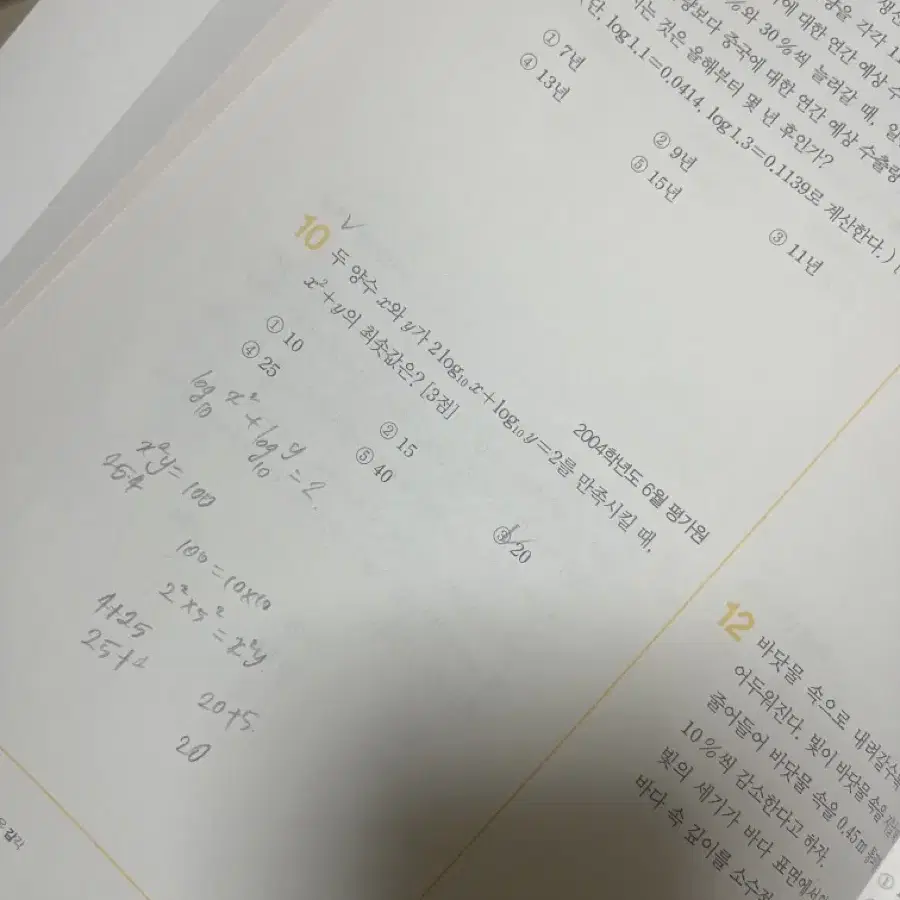 생산
양을 각각 1
%와 30%씩 늘려갈 때, 일
에 대한 연간 예상 수
량보다 중국에 대한 연간 예상 수출량
는 것은 올해부터 몇 년 후인가?
단, log1.1=0.0414, log1.3=0.1139로 계산한다.)
① 7년
② 9년
③ 11년
④ 13년
⑤ 15년
10
2004학년도 6월 평가원
두 양수 x와 y가 2log₁₀x+log₁₀y=2를 만족시킬 때,
x²+y의 최솟값은? [3점]
① 10
② 15
③ 20
④ 25
⑤ 40
log₁₀ x² + log₁₀ y = 2
x²y = 100
25·4
100 = 10×10
2²×5² = x²y
4+25
25+4
20+5
20
12
바닷물 속으로 내려갈수록
어두워진다. 빛이 바닷물 속을
줄어들어 바닷물 속을 0.45m
10%씩 감소한다고 하자.
빛의 세기가 바다 표면에서의
바다 속 깊이를 소수점
①